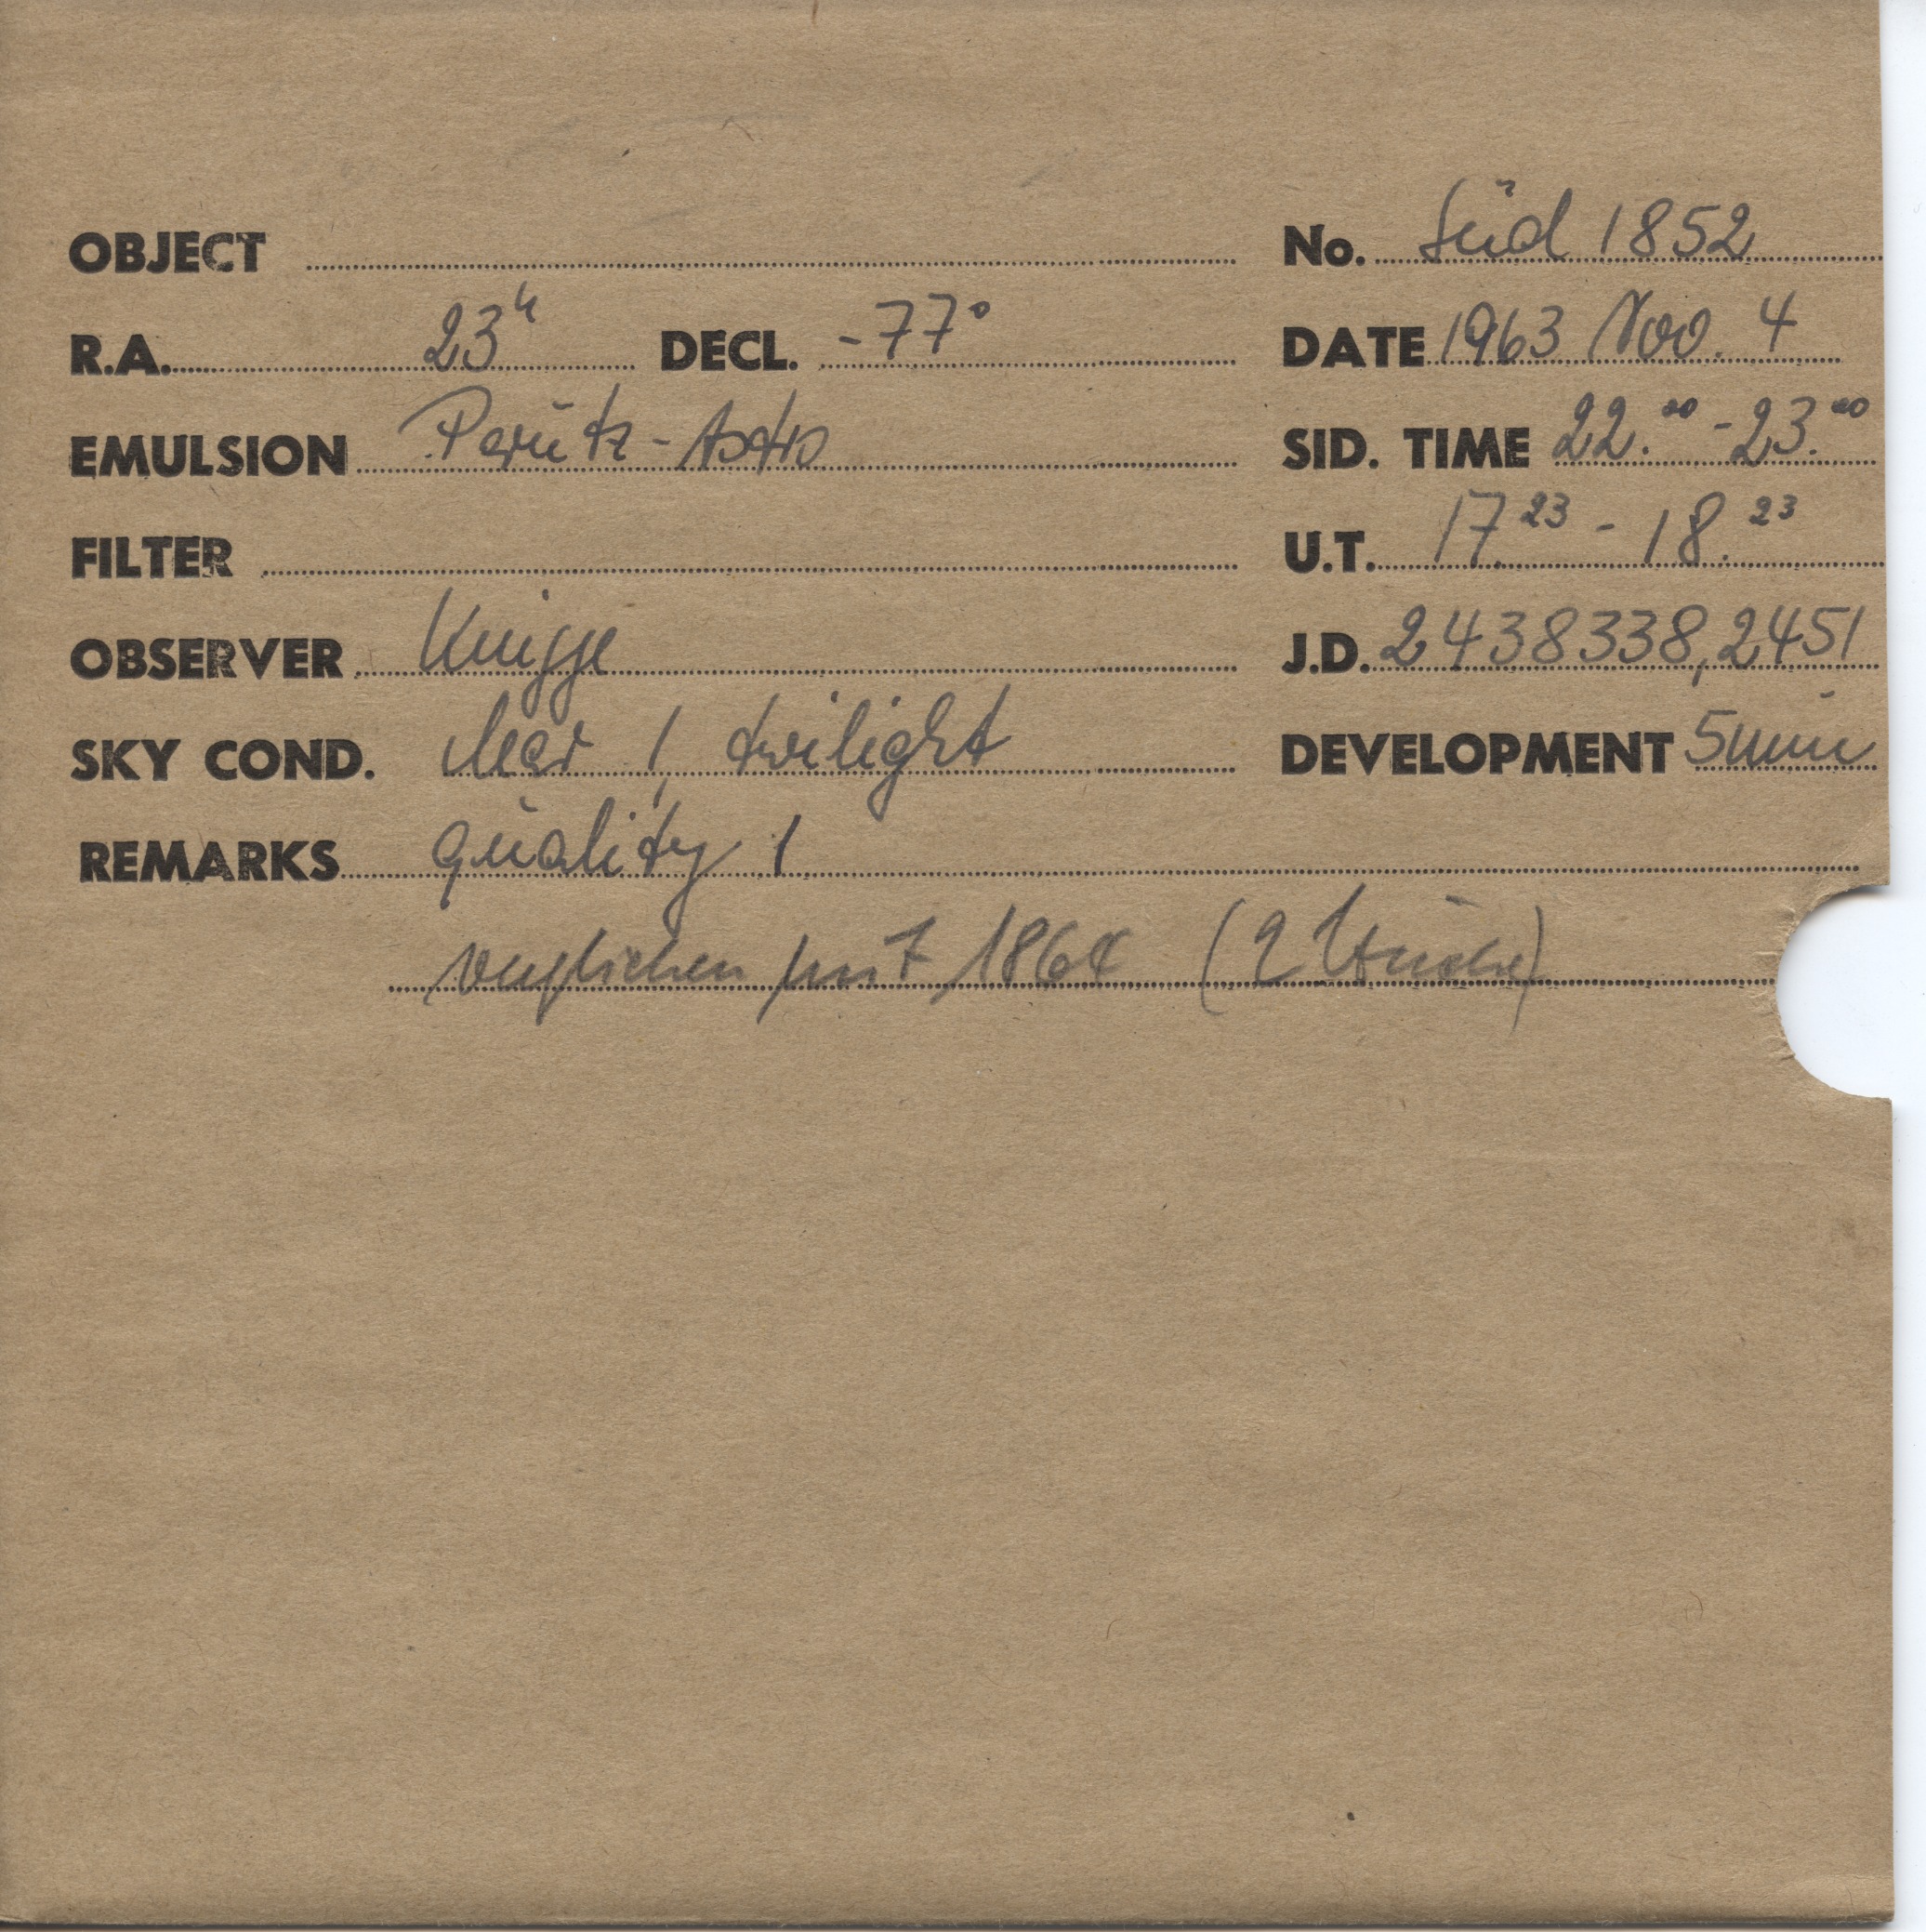 OBJECT No. Süd 1852
R.A. 23h DECL. -77° DATE 1963 Nov. 4
EMULSION Perutz-Astro SID. TIME 22.00 - 23.00
FILTER U.T. 17.23 - 18.23
OBSERVER Knigge J.D. 2438338,2451
SKY COND. clear 1, twilight DEVELOPMENT 5 min
REMARKS quality 1
verglichen mit (2